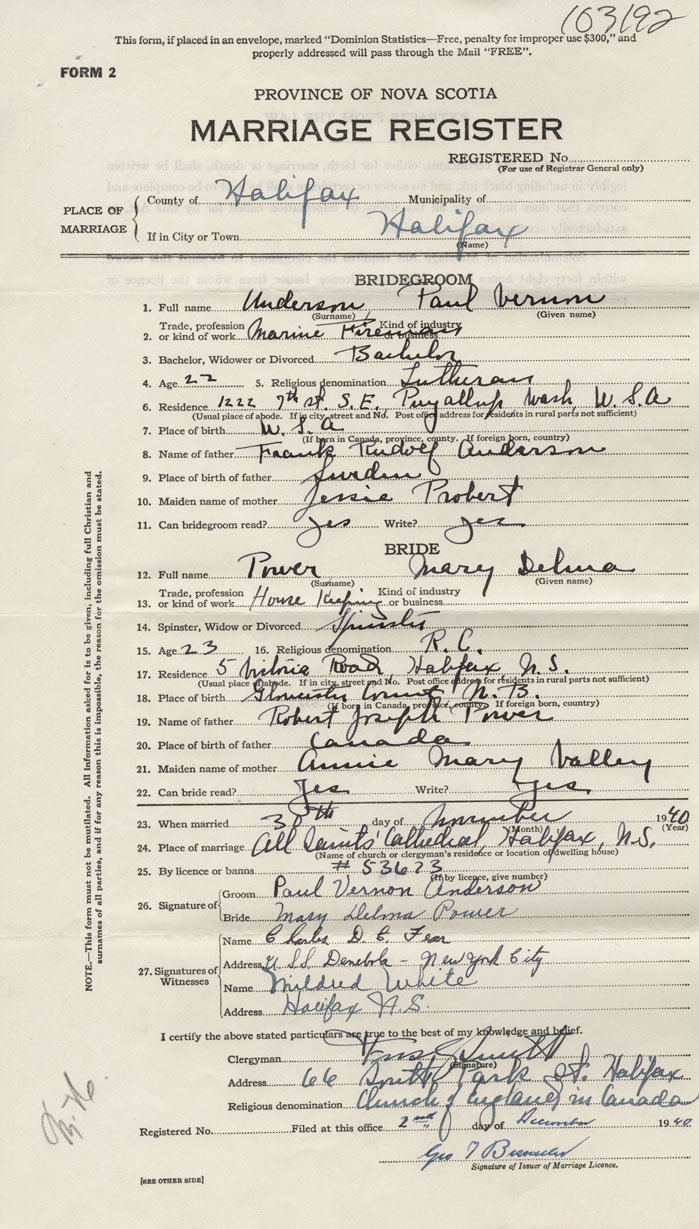 103192
This form, if placed in an envelope, marked "Dominion Statistics—Free, penalty for improper use $300," and
properly addressed will pass through the Mail "FREE".
FORM 2
PROVINCE OF NOVA SCOTIA
MARRIAGE REGISTER
REGISTERED No.
(For use of Registrar General only)
PLACE OF MARRIAGE
County of Halifax Municipality of
If in City or Town Halifax
(Name)
BRIDEGROOM
1. Full name Anderson Paul Vernon
(Surname) (Given name)
2. Trade, profession or kind of work Marine Fireman Kind of industry or business
3. Bachelor, Widower or Divorced Bachelor
4. Age 22 5. Religious denomination Lutheran
6. Residence 1222 7th st. S.E. Puyallup Wash, U.S.A
(Usual place of abode. If in city, street and No. Post office address for residents in rural parts not sufficient)
7. Place of birth U.S.A
(If born in Canada, province, county. If foreign born, country)
8. Name of father Frank Rudolf Anderson
9. Place of birth of father Sweden
10. Maiden name of mother Jessie Probert
11. Can bridegroom read? Yes Write? Yes
BRIDE
12. Full name Power Mary Delma
(Surname) (Given name)
13. Trade, profession or kind of work House Keeping Kind of industry or business
14. Spinster, Widow or Divorced Spinster
15. Age 23 16. Religious denomination R.C.
17. Residence 5 Victoria Road, Halifax N.S.
(Usual place of abode. If in city, street and No. Post office address for residents in rural parts not sufficient)
18. Place of birth Gloucester County N.B.
(If born in Canada, province, county. If foreign born, country)
19. Name of father Robert Joseph Power
20. Place of birth of father Canada
21. Maiden name of mother Annie Mary Valley
22. Can bride read? Yes Write? Yes
23. When married 30th day of November 1940
(Month) (Year)
24. Place of marriage All Saints' Cathedral, Halifax, N.S.
(Name of church or clergyman's residence or location of dwelling house)
25. By licence or banns # 53623
(If by licence, give number)
26. Signature of
Groom Paul Vernon Anderson
Bride Mary Delma Power
27. Signatures of Witnesses
Name Charles D. C. Fear
Address U.S.S. Denebola - New York City
Name Mildred White
Address Halifax N.S.
I certify the above stated particulars are true to the best of my knowledge and belief.
Clergyman
(Signature)
Address 66 South Park St. Halifax
Religious denomination Church of England in Canada
Registered No. Filed at this office 2nd day of December 1940
Geo T
Signature of Issuer of Marriage Licence.
[SEE OTHER SIDE]
NOTE.—This form must not be mutilated. All information asked for is to be given, including full Christian and
surnames of all parties, and if for any reason this is impossible, the reason for the omission must be stated.